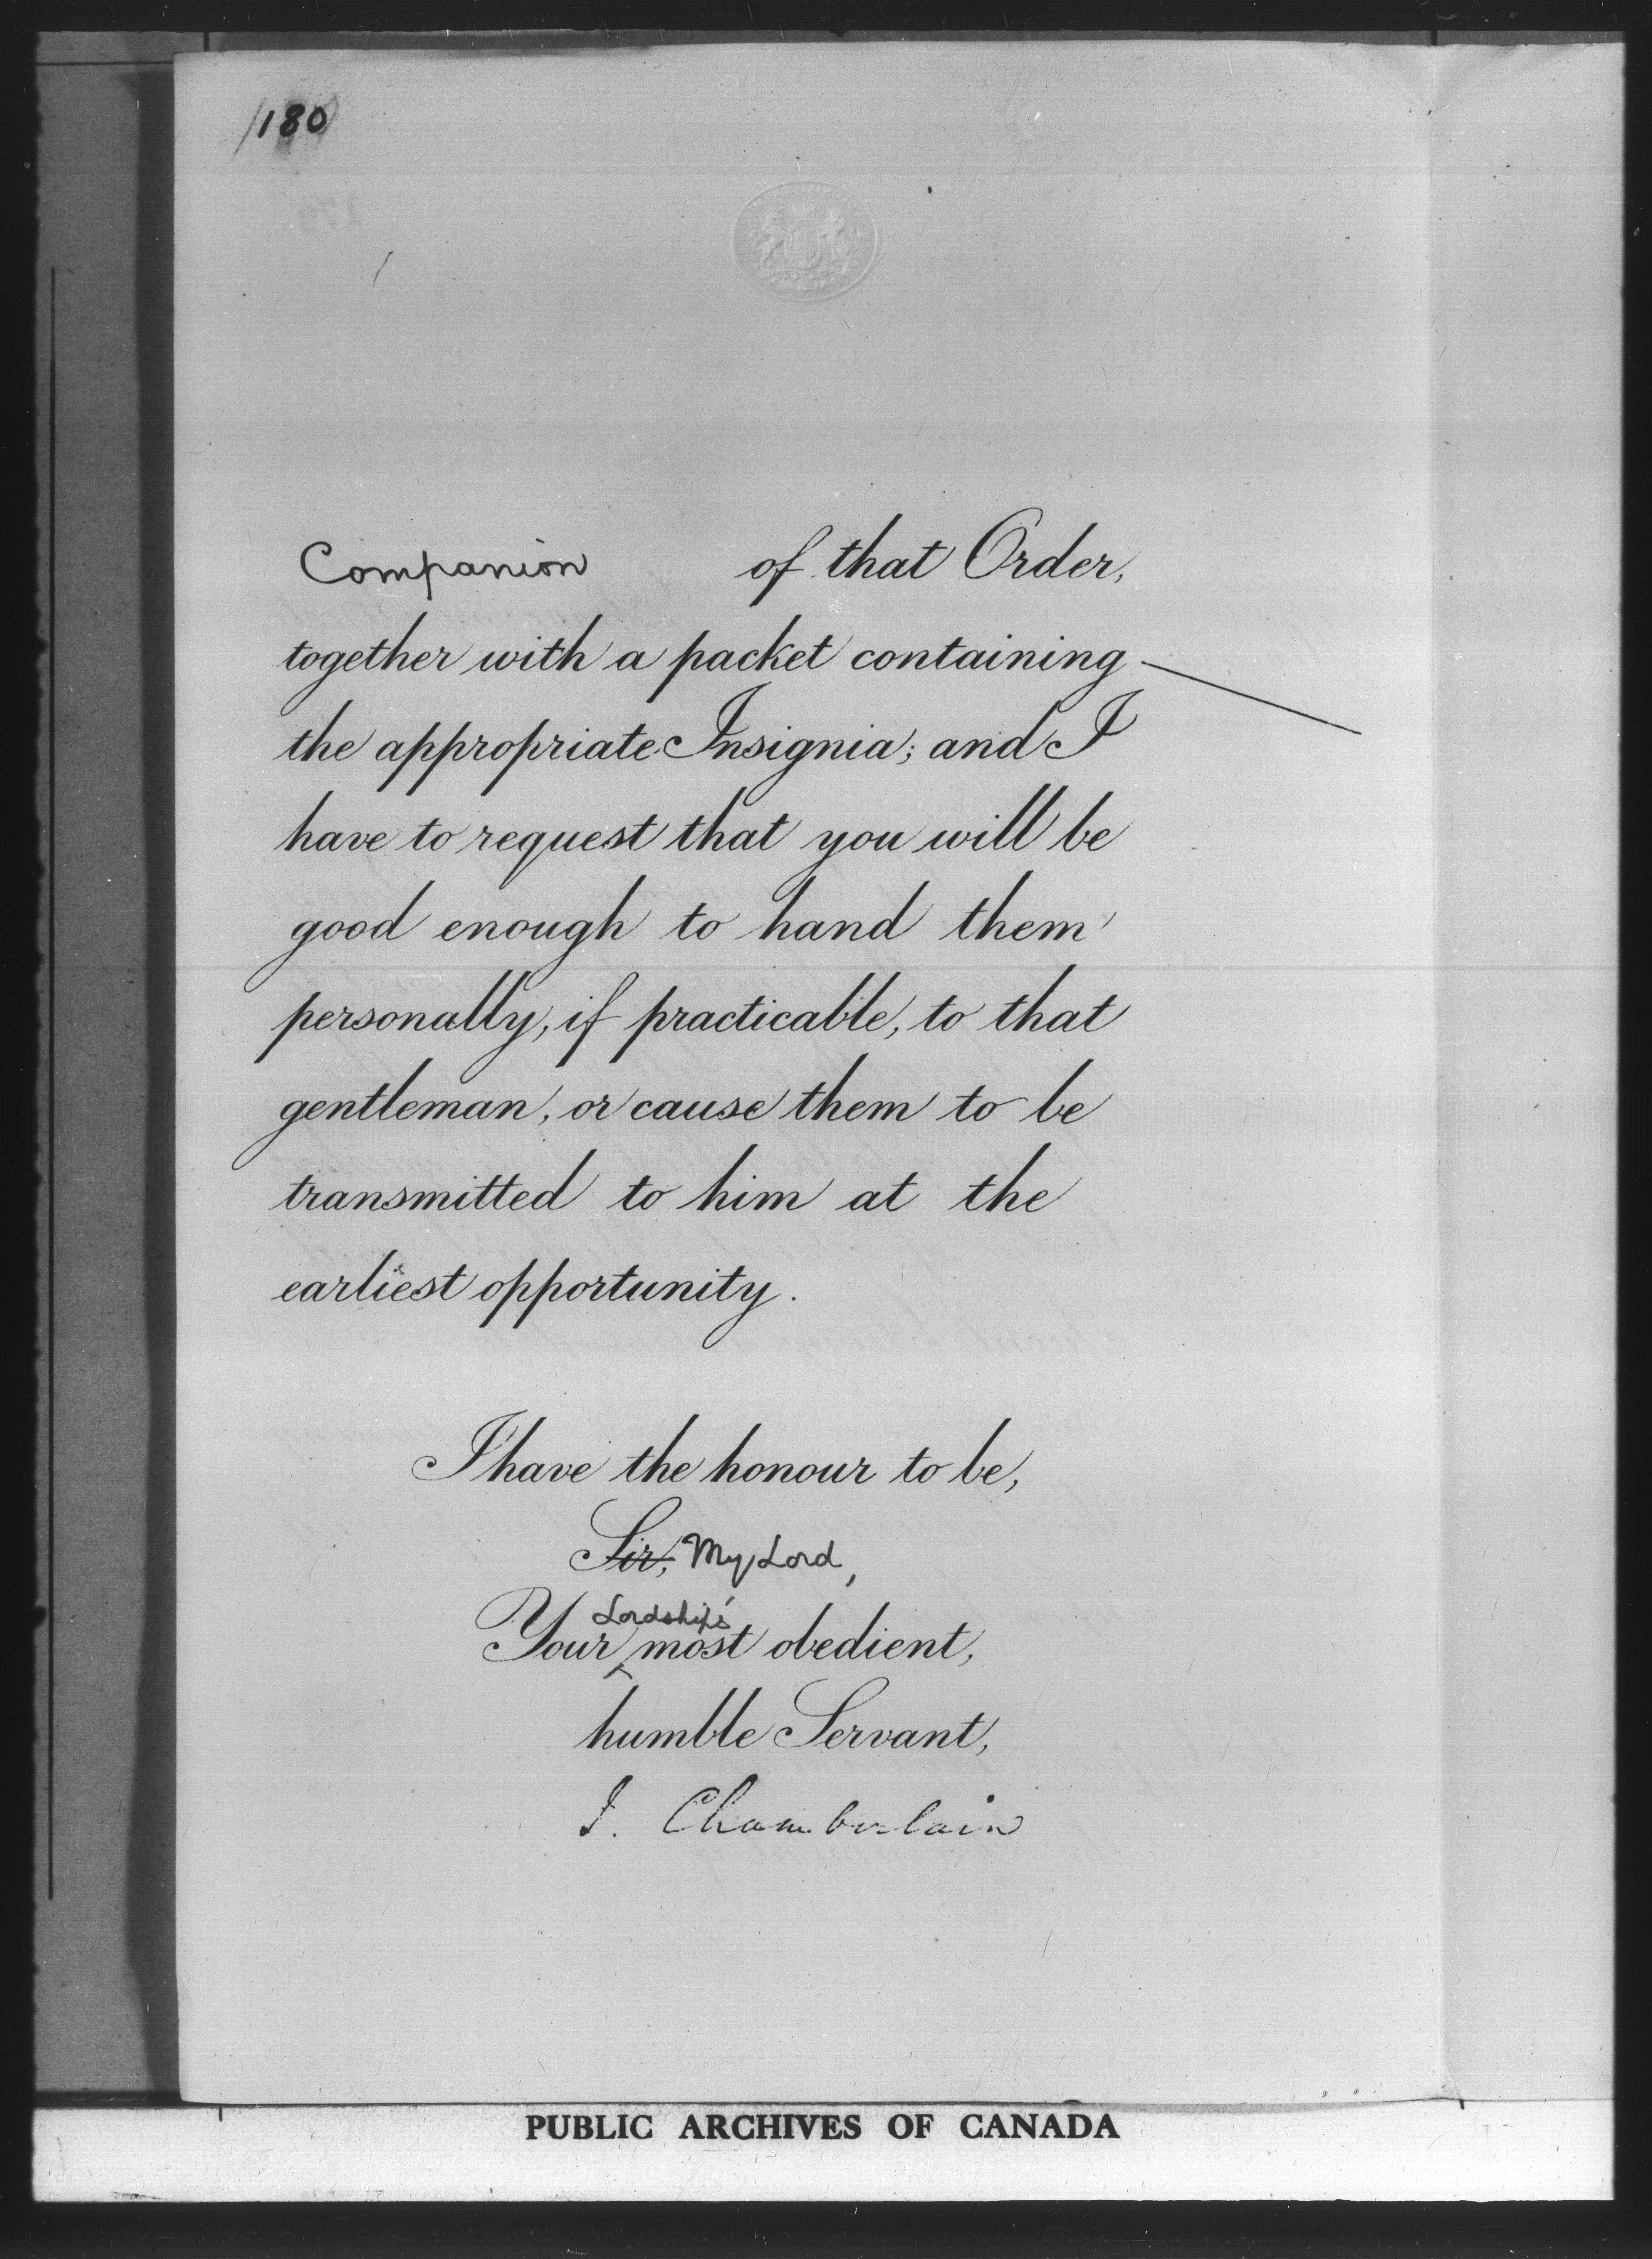 180
Companion of that Order,
together with a packet containing
the appropriate Insignia; and I
have to request that you will be
good enough to hand them
personally, if practicable, to that
gentleman, or cause them to be
transmitted to him at the
earliest opportunity.
I have the honour to be,
Sir, My Lord,
Lordship's
Your most obedient,
humble Servant,
J. Chamberlain
PUBLIC ARCHIVES OF CANADA